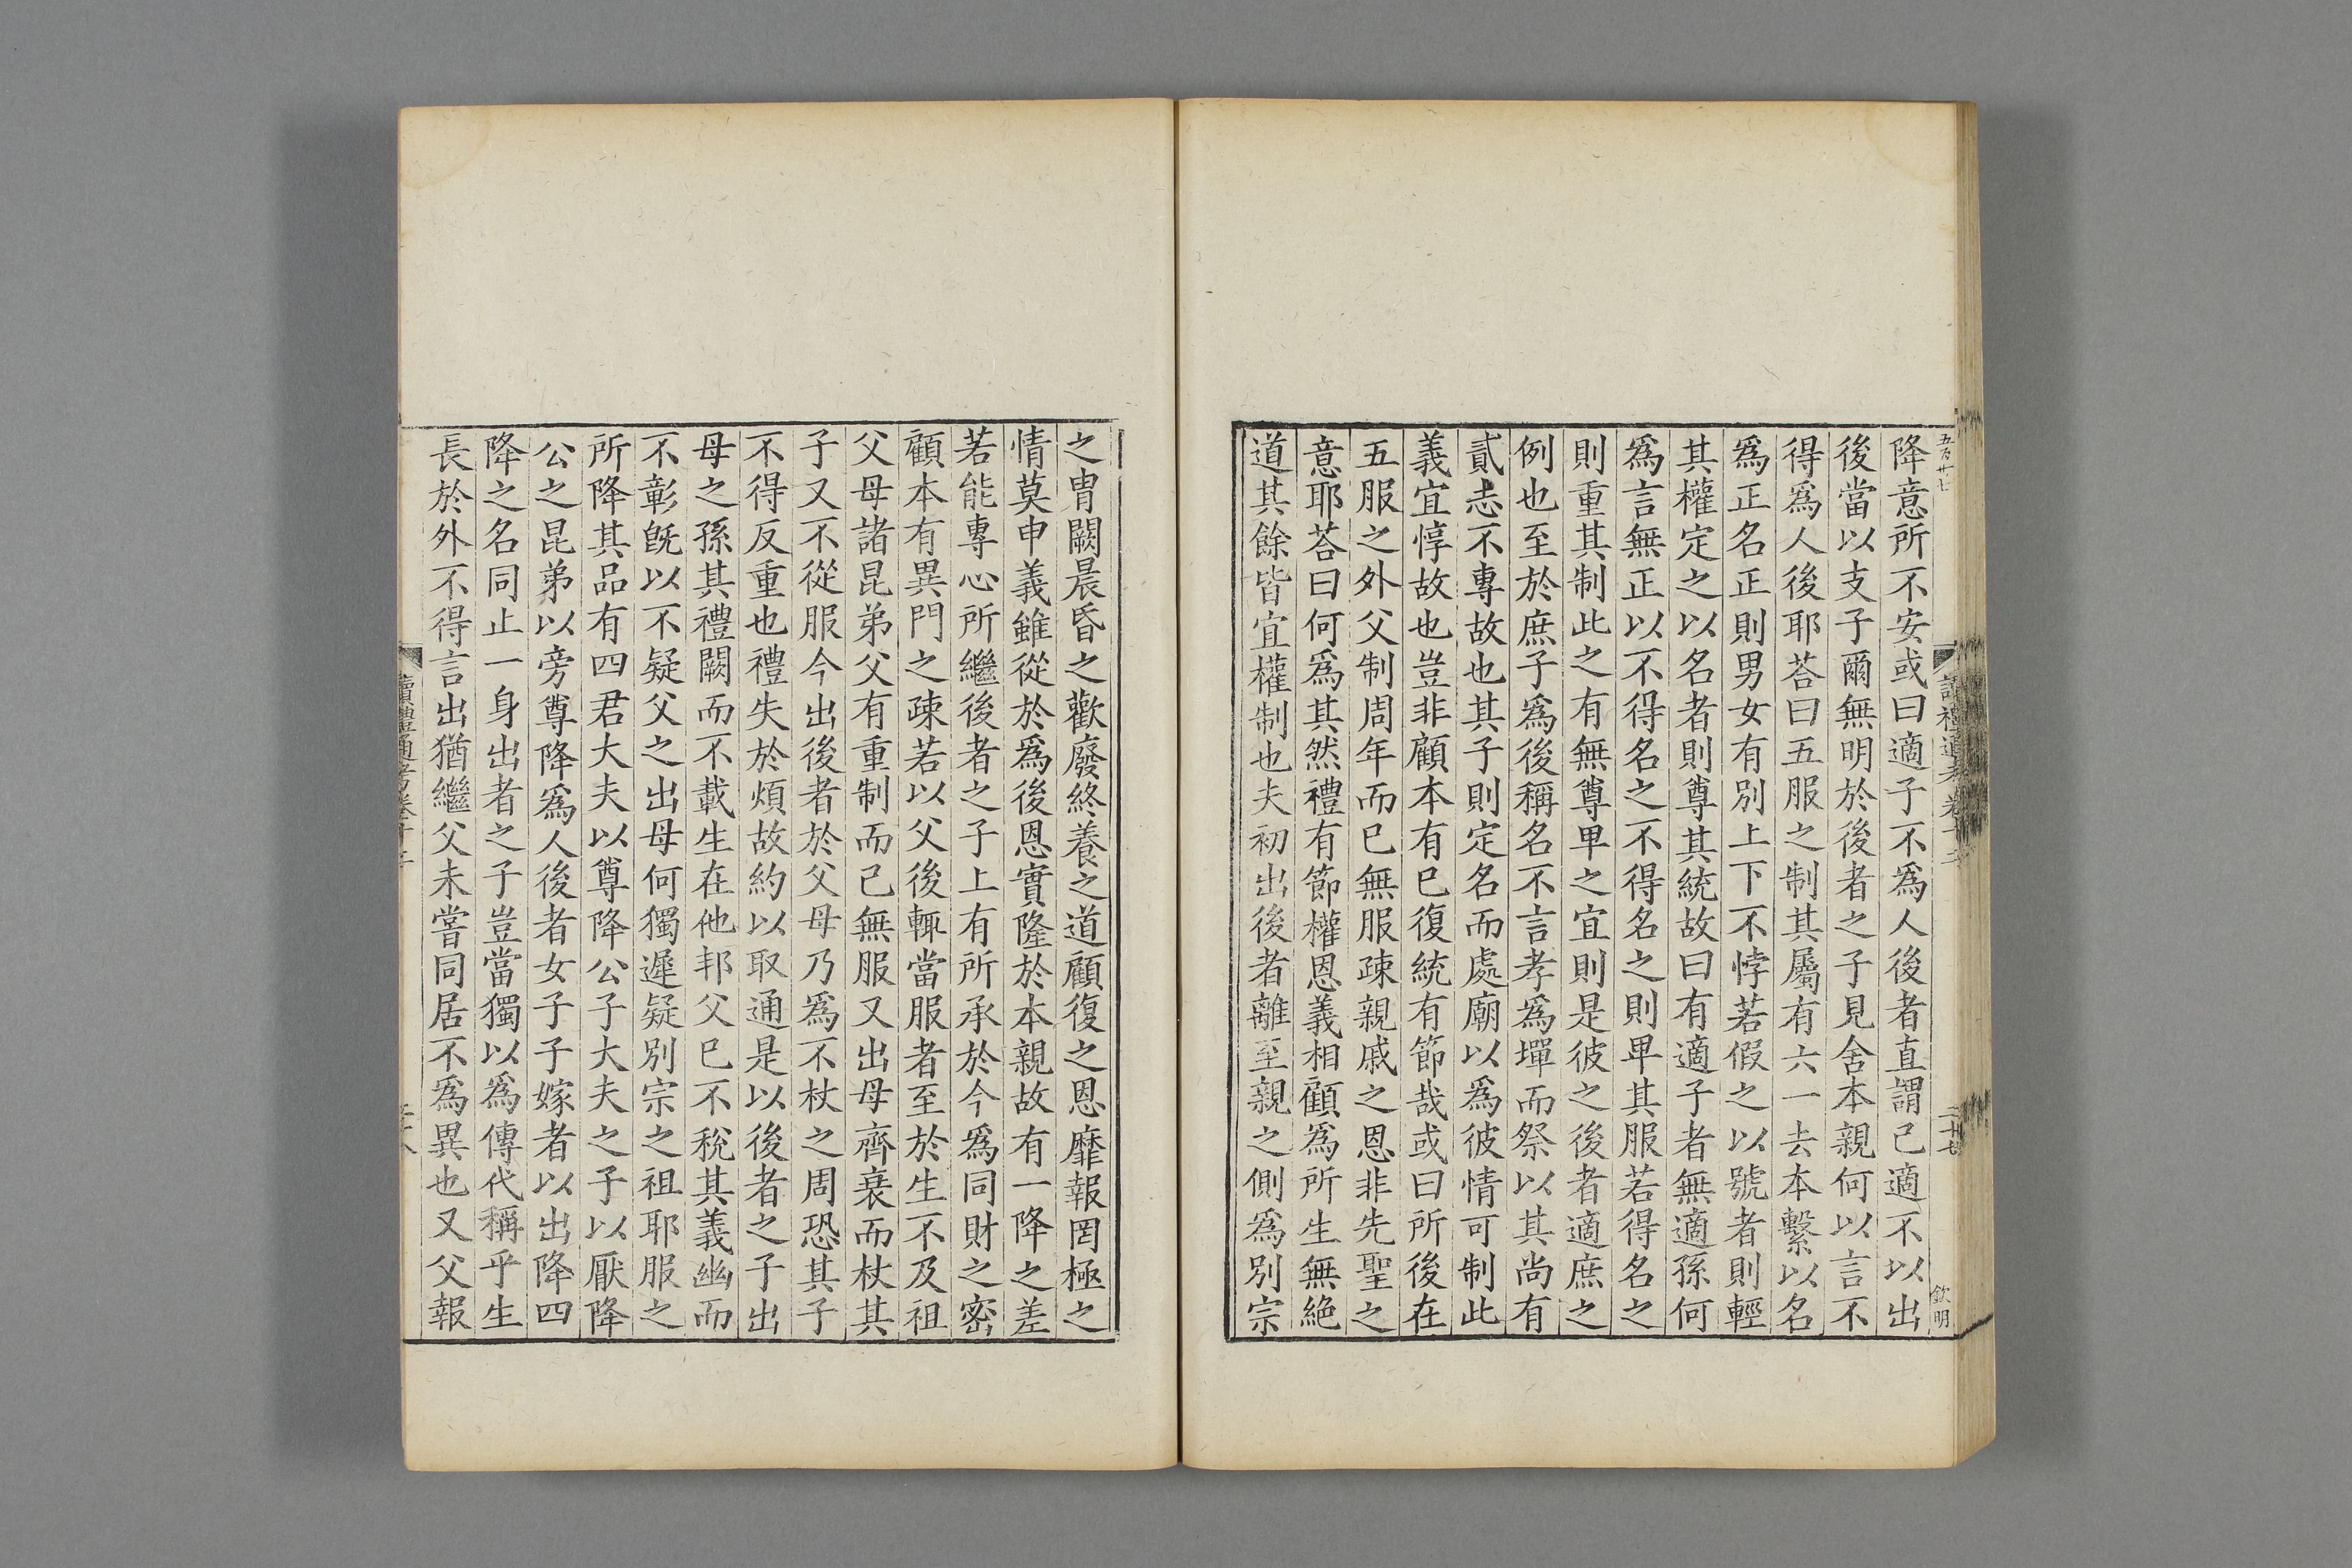 五百廿七
讀禮通考卷十三
二十七
欽明
降意所不安或曰適子不爲人後者直謂己適不以出
後當以支子爾無明於後者之子見舍本親何以言不
得爲人後耶荅曰五服之制其屬有六一去本繫以名
爲正名正則男女有別上下不悖若假之以號者則輕
其權定之以名者則尊其統故曰有適子者無適孫何
爲言無正以不得名之不得名之則卑其服若得名之
則重其制此之有無尊卑之宜則是彼之後者適庶之
例也至於庶子爲後稱名不言孝爲墠而祭以其尚有
貳志不專故也其子則定名而處廟以爲彼情可制此
義宜惇故也豈非顧本有已復統有節哉或曰所後在
五服之外父制周年而已無服疎親戚之恩非先聖之
意耶荅曰何爲其然禮有節權恩義相顧爲所生無絶
道其餘皆宜權制也夫初出後者離至親之側爲別宗
之胄闕晨昏之歡廢終養之道顧復之恩靡報罔極之
情莫申義雖從於爲後恩實隆於本親故有一降之差
若能專心所繼後者之子上有所承於今爲同財之密
顧本有異門之疎若以父後輒當服者至於生不及祖
父母諸昆弟父有重制而己無服又出母齊衰而杖其
子又不從服今出後者於父母乃爲不杖之周恐其子
不得反重也禮失於煩故約以取通是以後者之子出
母之孫其禮闕而不載生在他邦父已不稅其義幽而
不彰旣以不疑父之出母何獨遲疑別宗之祖耶服之
所降其品有四君大夫以尊降公子大夫之子以厭降
公之昆弟以旁尊降爲人後者女子子嫁者以出降四
降之名同止一身出者之子豈當獨以爲傳代稱乎生
長於外不得言出猶繼父未嘗同居不爲異也又父報
讀禮通考卷十三